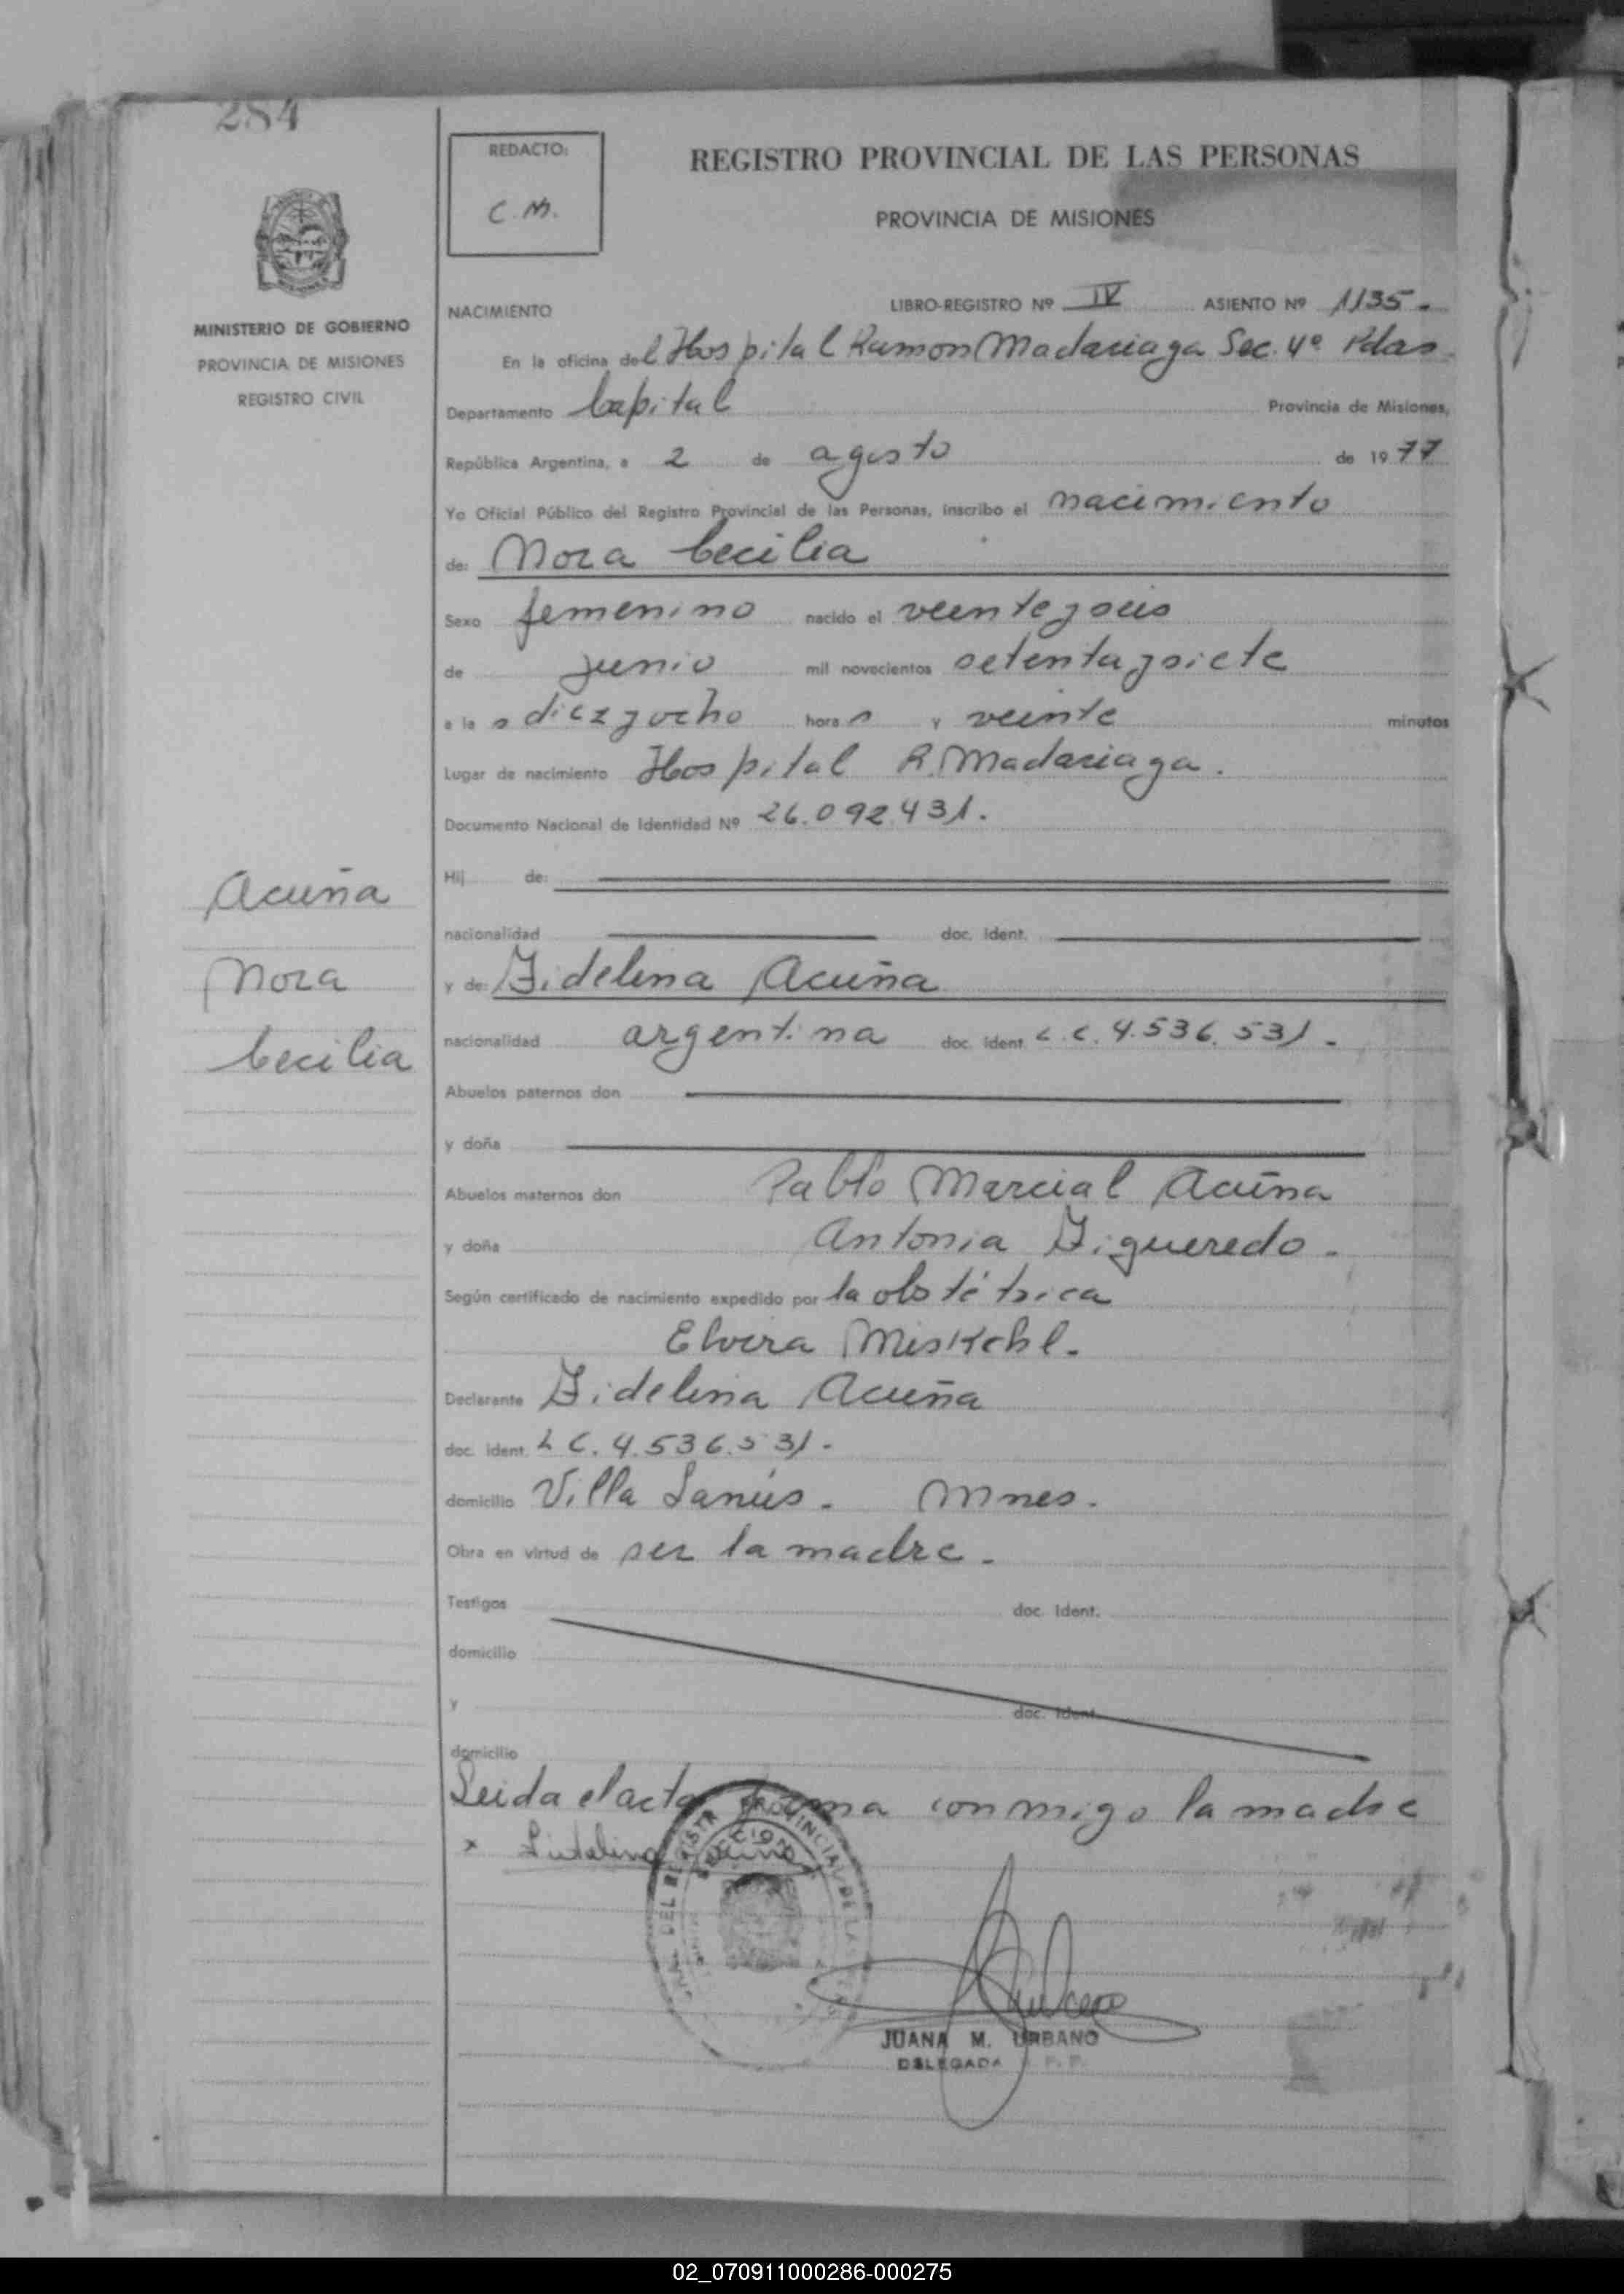 284
REDACTO:
C.M.
REGISTRO PROVINCIAL DE LAS PERSONAS
PROVINCIA DE MISIONES
MINISTERIO DE GOBIERNO
PROVINCIA DE MISIONES
REGISTRO CIVIL
NACIMIENTO LIBRO-REGISTRO Nº IV ASIENTO Nº 1135.
En la oficina del Hospital Ramon Madariaga Sec. 4ª Pdas
Departamento Capital Provincia de Misiones,
República Argentina, a 2 de agosto de 1977
Yo Oficial Público del Registro Provincial de las Personas, inscribo el nacimiento
de: Nora Cecilia
Sexo femenino nacido el veinteyseis
de junio mil novecientos setentaysiete
a la s diezyocho hora s y veinte minutos
Lugar de nacimiento Hospital R. Madariaga.
Documento Nacional de Identidad Nº 26.092.431.
Hij de:
nacionalidad doc. Ident.
Acuña
Nora
Cecilia
y de: Fidelina Acuña
nacionalidad argentina doc. Ident. L.C. 4.536.531.
Abuelos paternos don
y doña
Abuelos maternos don Pablo Marcial Acuña
y doña Antonia Figueredo.
Según certificado de nacimiento expedido por la obstétrica
Elvira Miskehl.
Declarante Fidelina Acuña
doc. Ident. L C. 4.536.531.
domicilio Villa Lanús. Mnes.
Obra en virtud de ser la madre.
Testigos doc. Ident.
domicilio
y doc. Ident.
domicilio
Leida el acta firma conmigo la madre
x Fidelina Acuña
JUANA M. URBANO
DELEGADA
02_070911000286-000275